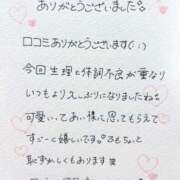 ありがとうございました
口コミありがとうございます(:)
今回生理と体調不良が重なり
いつもよりえしぶりになりましたね
可愛いてあい様に思ってもらえて
すごーく嬉しいです。おもちゃと
恥ずかしくもあります